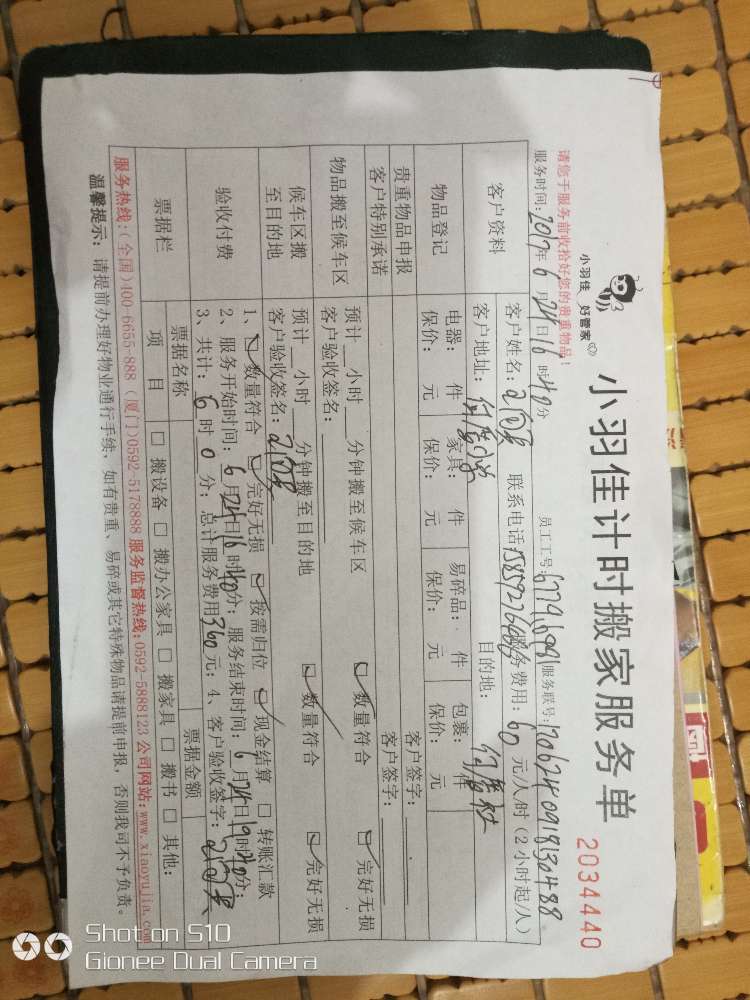 小羽佳 好管家
小羽佳计时搬家服务单
2034440
请您于服务前收拾好您的贵重物品！
服务时间：2017年6月24日16时40分 员工工号： 服务联号：
客户资料 客户姓名： 联系电话： 服务费用：60元/人/时（2小时起/人）
客户地址： 目的地：
物品登记 电器： 件 家具： 件 易碎品： 件 包裹： 件
保价： 元 保价： 元 保价： 元 保价： 元
贵重物品申报 客户签字：
客户特别承诺 客户签字：
物品搬至候车区 预计 小时 分钟搬至候车区 数量符合 完好无损
客户验收签名：
候车区搬至目的地 预计 小时 分钟搬至目的地 数量符合 完好无损
客户验收签名：
验收付费 1、数量符合 完好无损 按需归位 现金结算 转账汇款
2、服务开始时间：6月24日16时40分；服务结束时间：6月24日19时40分；
3、共计：6时0分；总计服务费用360元；4、客户验收签字：
票据栏 票据名称 票据金额
项目 搬设备 搬办公家具 搬家具 搬书 其他：
服务热线：(全国)400-6655-888 (厦门)0592-5178888 服务监督热线：0592-5888123 公司网站：www.xiaoyujia.com
温馨提示：请提前办理好物业通行手续，如有贵重、易碎或其它特殊物品请提前申报，否则我司不予负责。
Shot on S10
Gionee Dual Camera